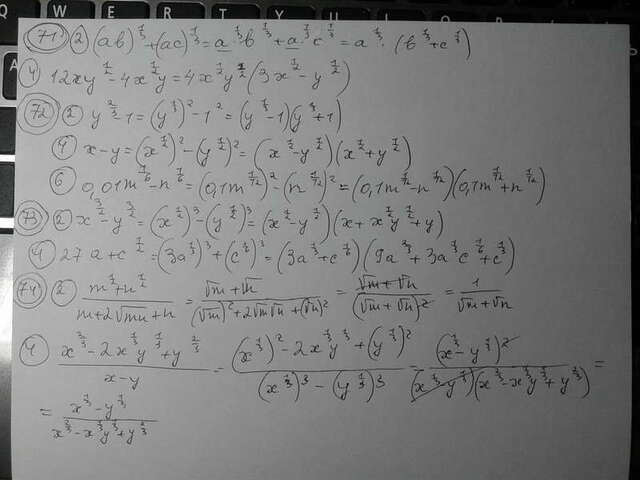 71 2) (ab)^{1/3}+(ac)^{1/3}=a^{1/3}·b^{1/3}+a^{1/3}·c^{1/3}=a^{1/3}·(b^{1/3}+c^{1/3})
4) 12xy^{1/2}-4x^{1/2}y=4x^{1/2}y^{1/2}(3x^{1/2}-y^{1/2})
72 2) y^{2/3}-1=(y^{1/3})^2-1^2=(y^{1/3}-1)(y^{1/3}+1)
4) x-y=(x^{1/2})^2-(y^{1/2})^2=(x^{1/2}-y^{1/2})(x^{1/2}+y^{1/2})
6) 0,01m^{1/6}-n^{1/6}=(0,1m^{1/12})^2-(n^{1/12})^2=(0,1m^{1/12}-n^{1/12})(0,1m^{1/12}+n^{1/12})
73 2) x^{3/2}-y^{3/2}=(x^{1/2})^3-(y^{1/2})^3=(x^{1/2}-y^{1/2})(x+x^{1/2}y^{1/2}+y)
4) 27a+c^{1/2}=(3a^{1/3})^3+(c^{1/6})^3=(3a^{1/3}+c^{1/6})(9a^{2/3}+3a^{1/3}c^{1/6}+c^{1/3})
74 2) (m^{1/2}+n^{1/2})/(m+2√mn+n)=(√m+√n)/((√m)^2+2√m√n+(√n)^2)=(√m+√n)/((√m+√n)^2)=1/(√m+√n)
4) (x^{2/3}-2x^{1/3}y^{1/3}+y^{2/3})/(x-y)=((x^{1/3})^2-2x^{1/3}y^{1/3}+(y^{1/3})^2)/((x^{1/3})^3-(y^{1/3})^3)=((x^{1/3}-y^{1/3})^2)/((x^{1/3}-y^{1/3})(x^{2/3}-x^{1/3}y^{1/3}+y^{2/3}))=
=(x^{1/3}-y^{1/3})/(x^{2/3}-x^{1/3}y^{1/3}+y^{2/3})